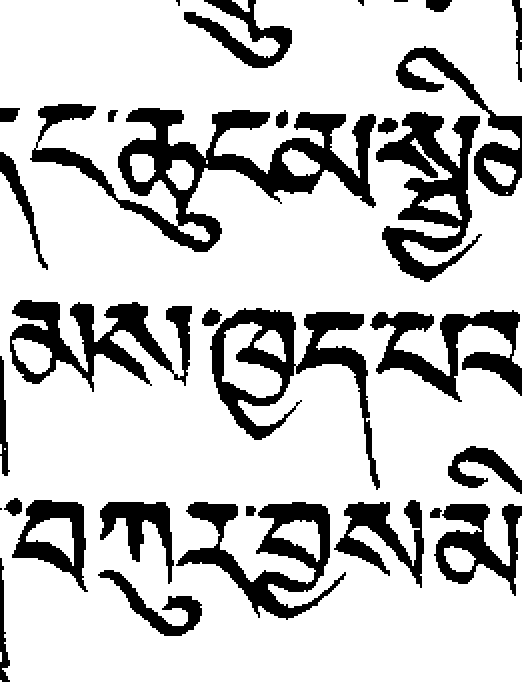 དང་ཆུང་མ་སྦྱིན
མས་ཁྱད་པར
་བཀུར་བྱས་མི